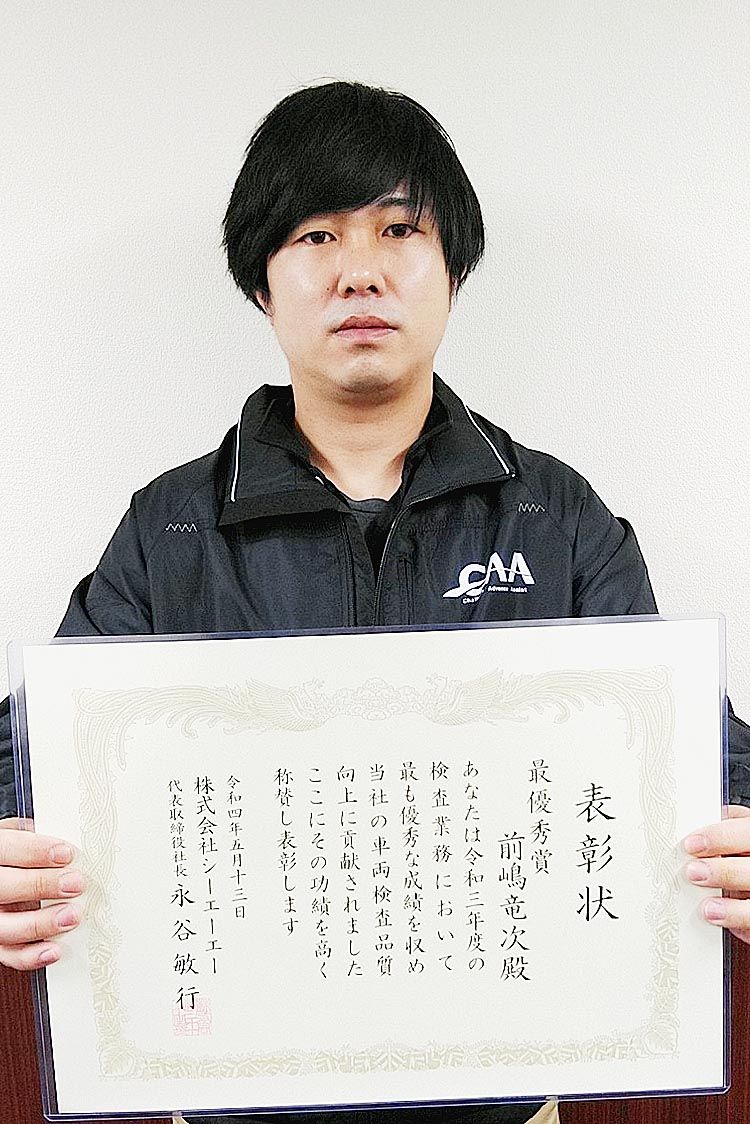 CAA
表彰状
最優秀賞
前嶋竜次殿
あなたは令和三年度の
検査業務において
最も優秀な成績を収め
当社の車両検査品質
向上に貢献されました
ここにその功績を高く
称賛し表彰します
令和四年五月十三日
株式会社シーエーエー
代表取締役社長 永谷敏行